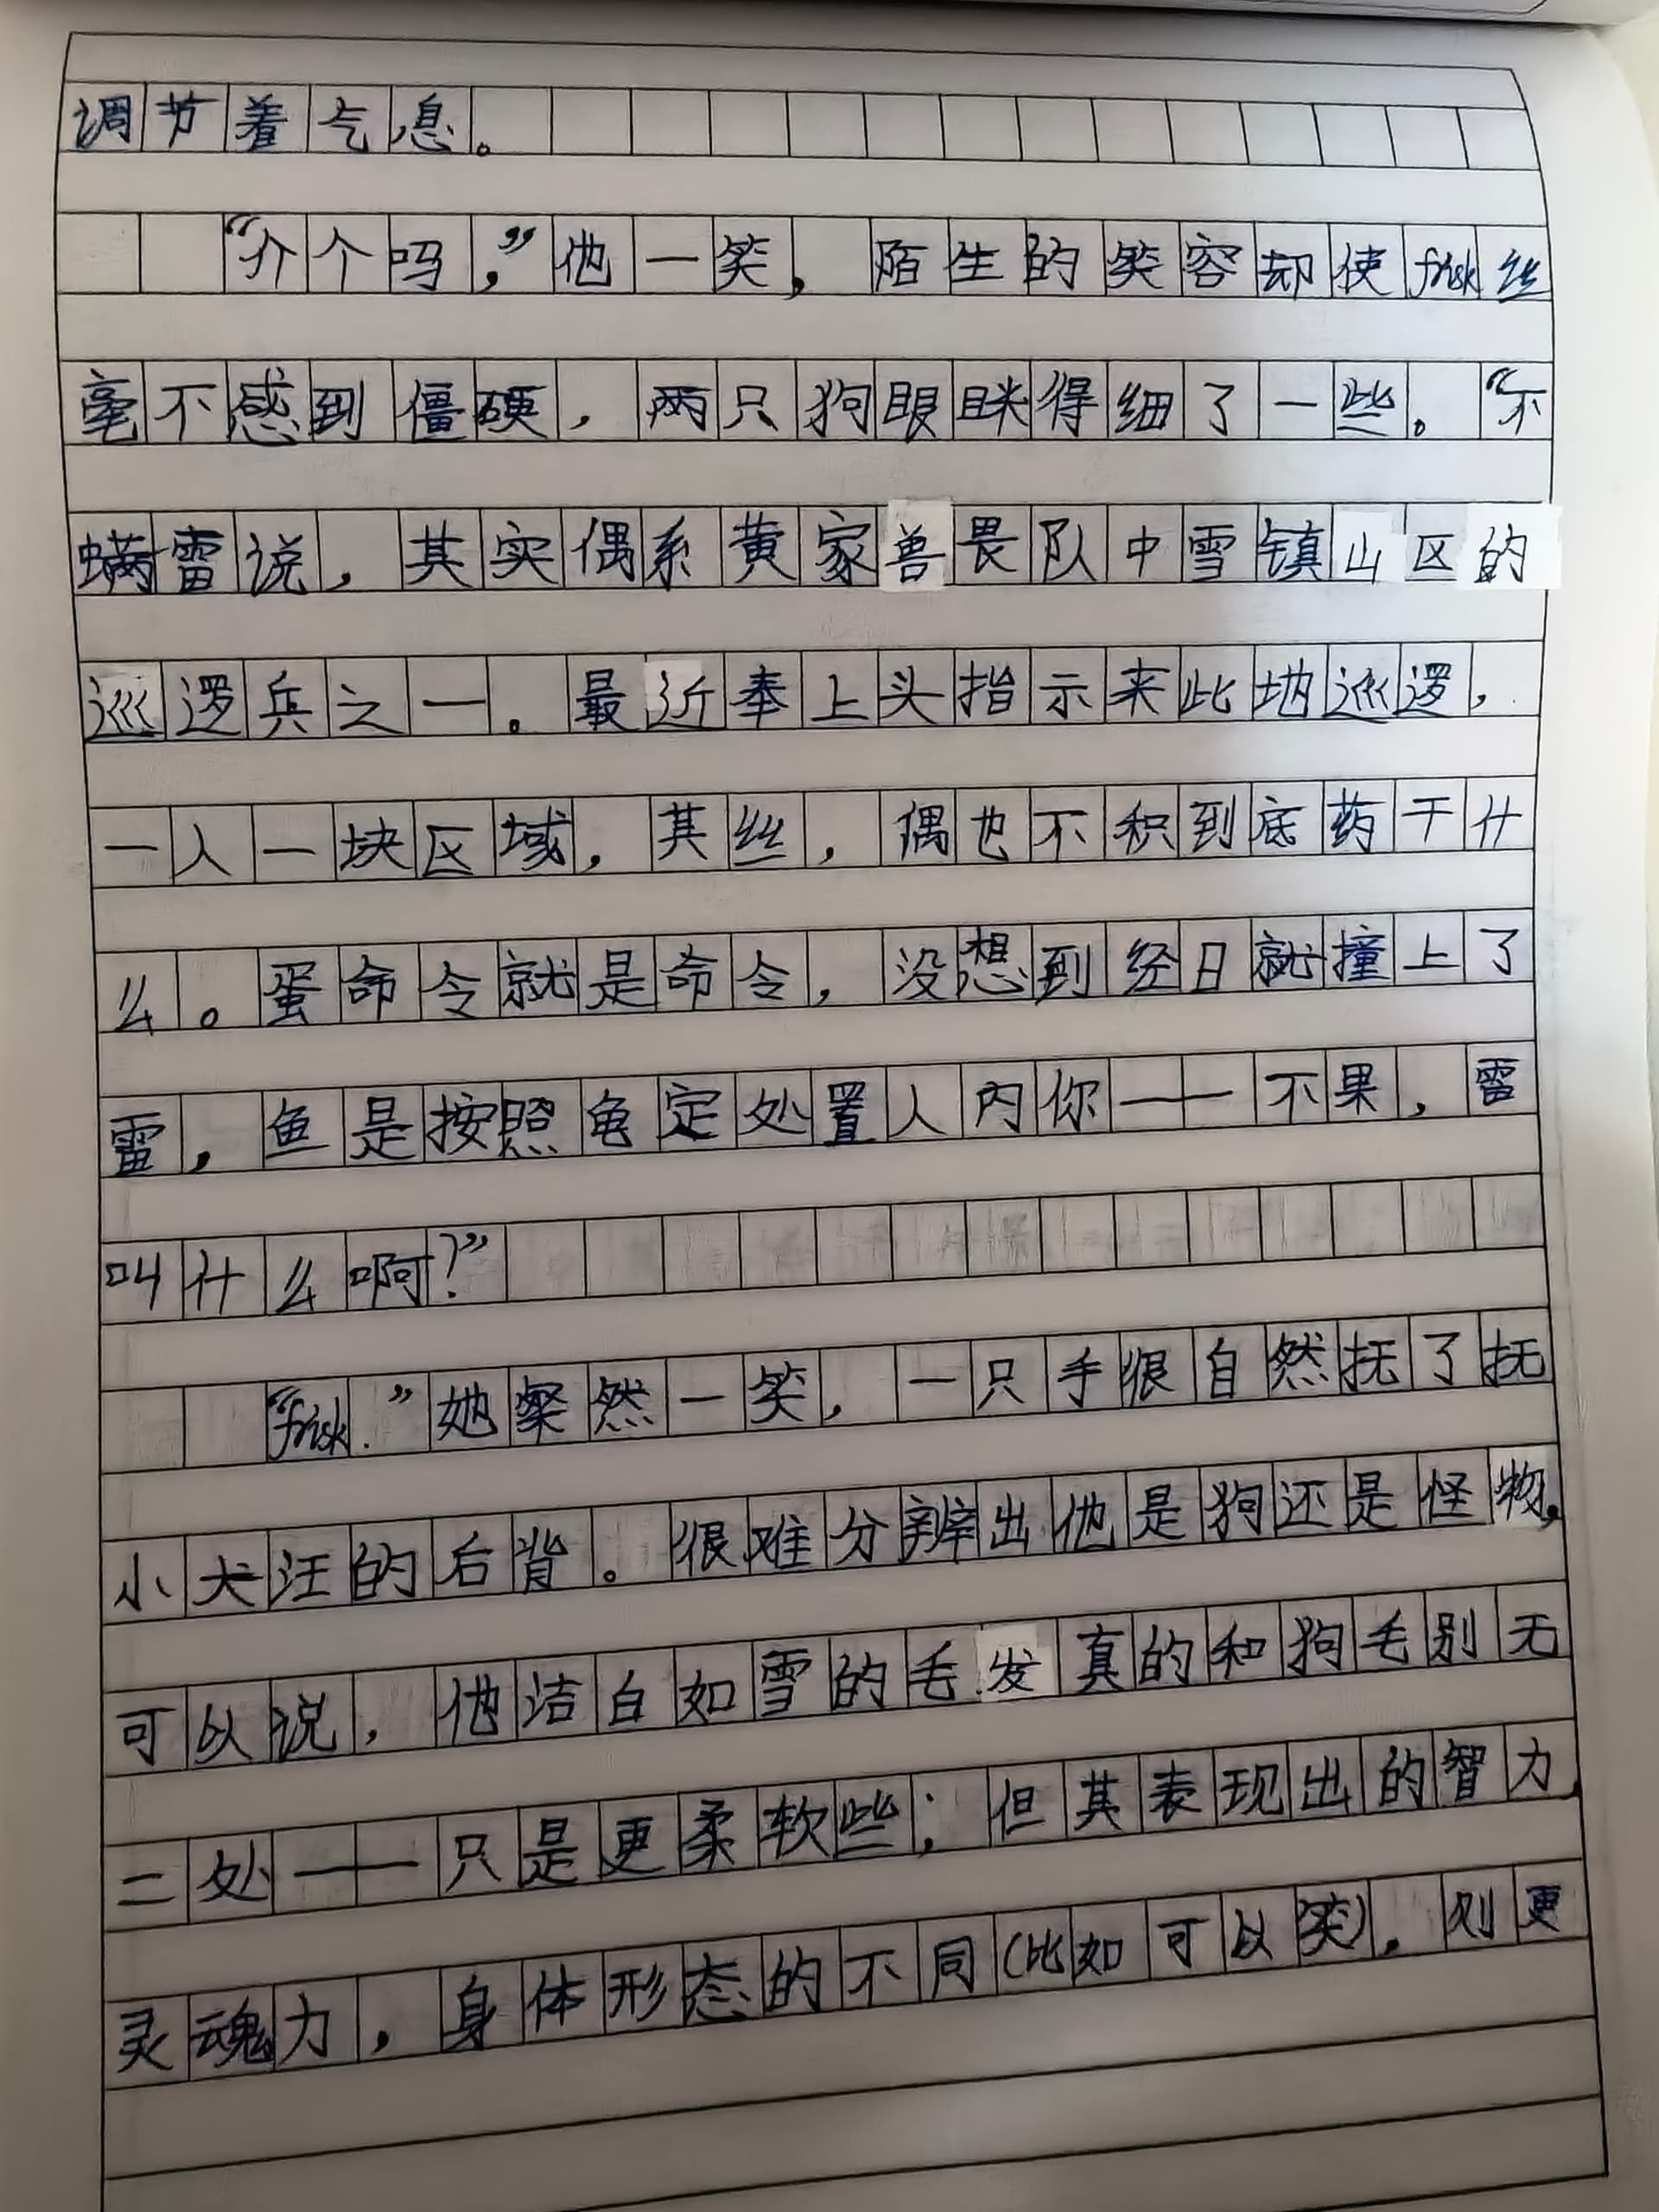 调节着气息。
“介个吗,”他一笑,陌生的笑容却使frisk丝
毫不感到僵硬,两只狗眼眯得细了一些。“不
螨雷说,其实偶系黄家兽畏队中雪镇山区的
巡逻兵之一。最近奉上头指示来此地巡逻,
一人一块区域,其丝,偶也不积到底药干什
么。蛋命令就是命令,没想到经日就撞上了
雷,鱼是按照龟定处置人内你——不果,雷
叫什么啊?”
“frisk.”她粲然一笑,一只手很自然抚了抚
小犬汪的后背。很难分辨出他是狗还是怪物。
可以说,他洁白如雪的毛发真的和狗毛别无
二处——只是更柔软些;但其表现出的智力,
灵魂力,身体形态的不同(比如可以笑),则更